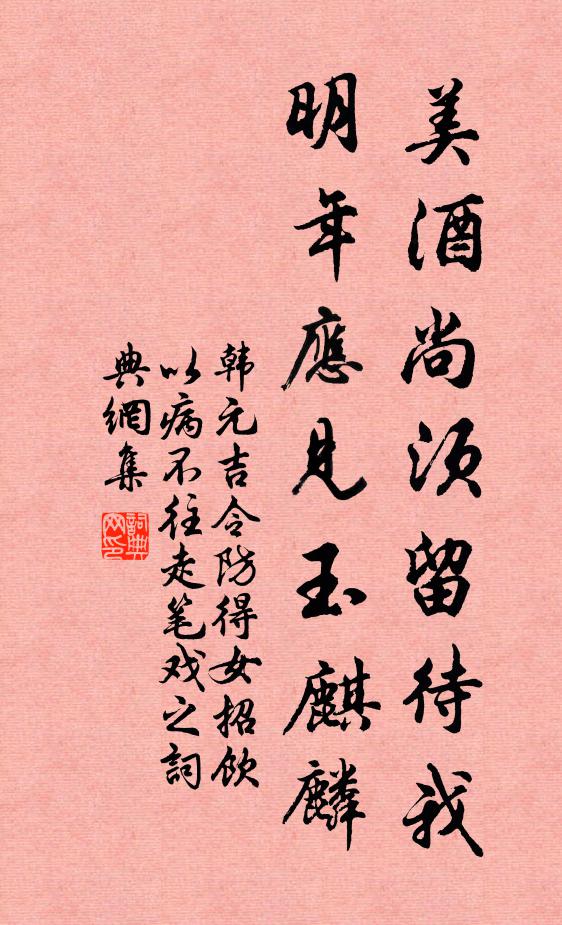 美酒尚须留待我
明年應見玉麒麟
韩元吉令防得女招饮
以病不往走笔戏之詞
典網集
詞典
网印